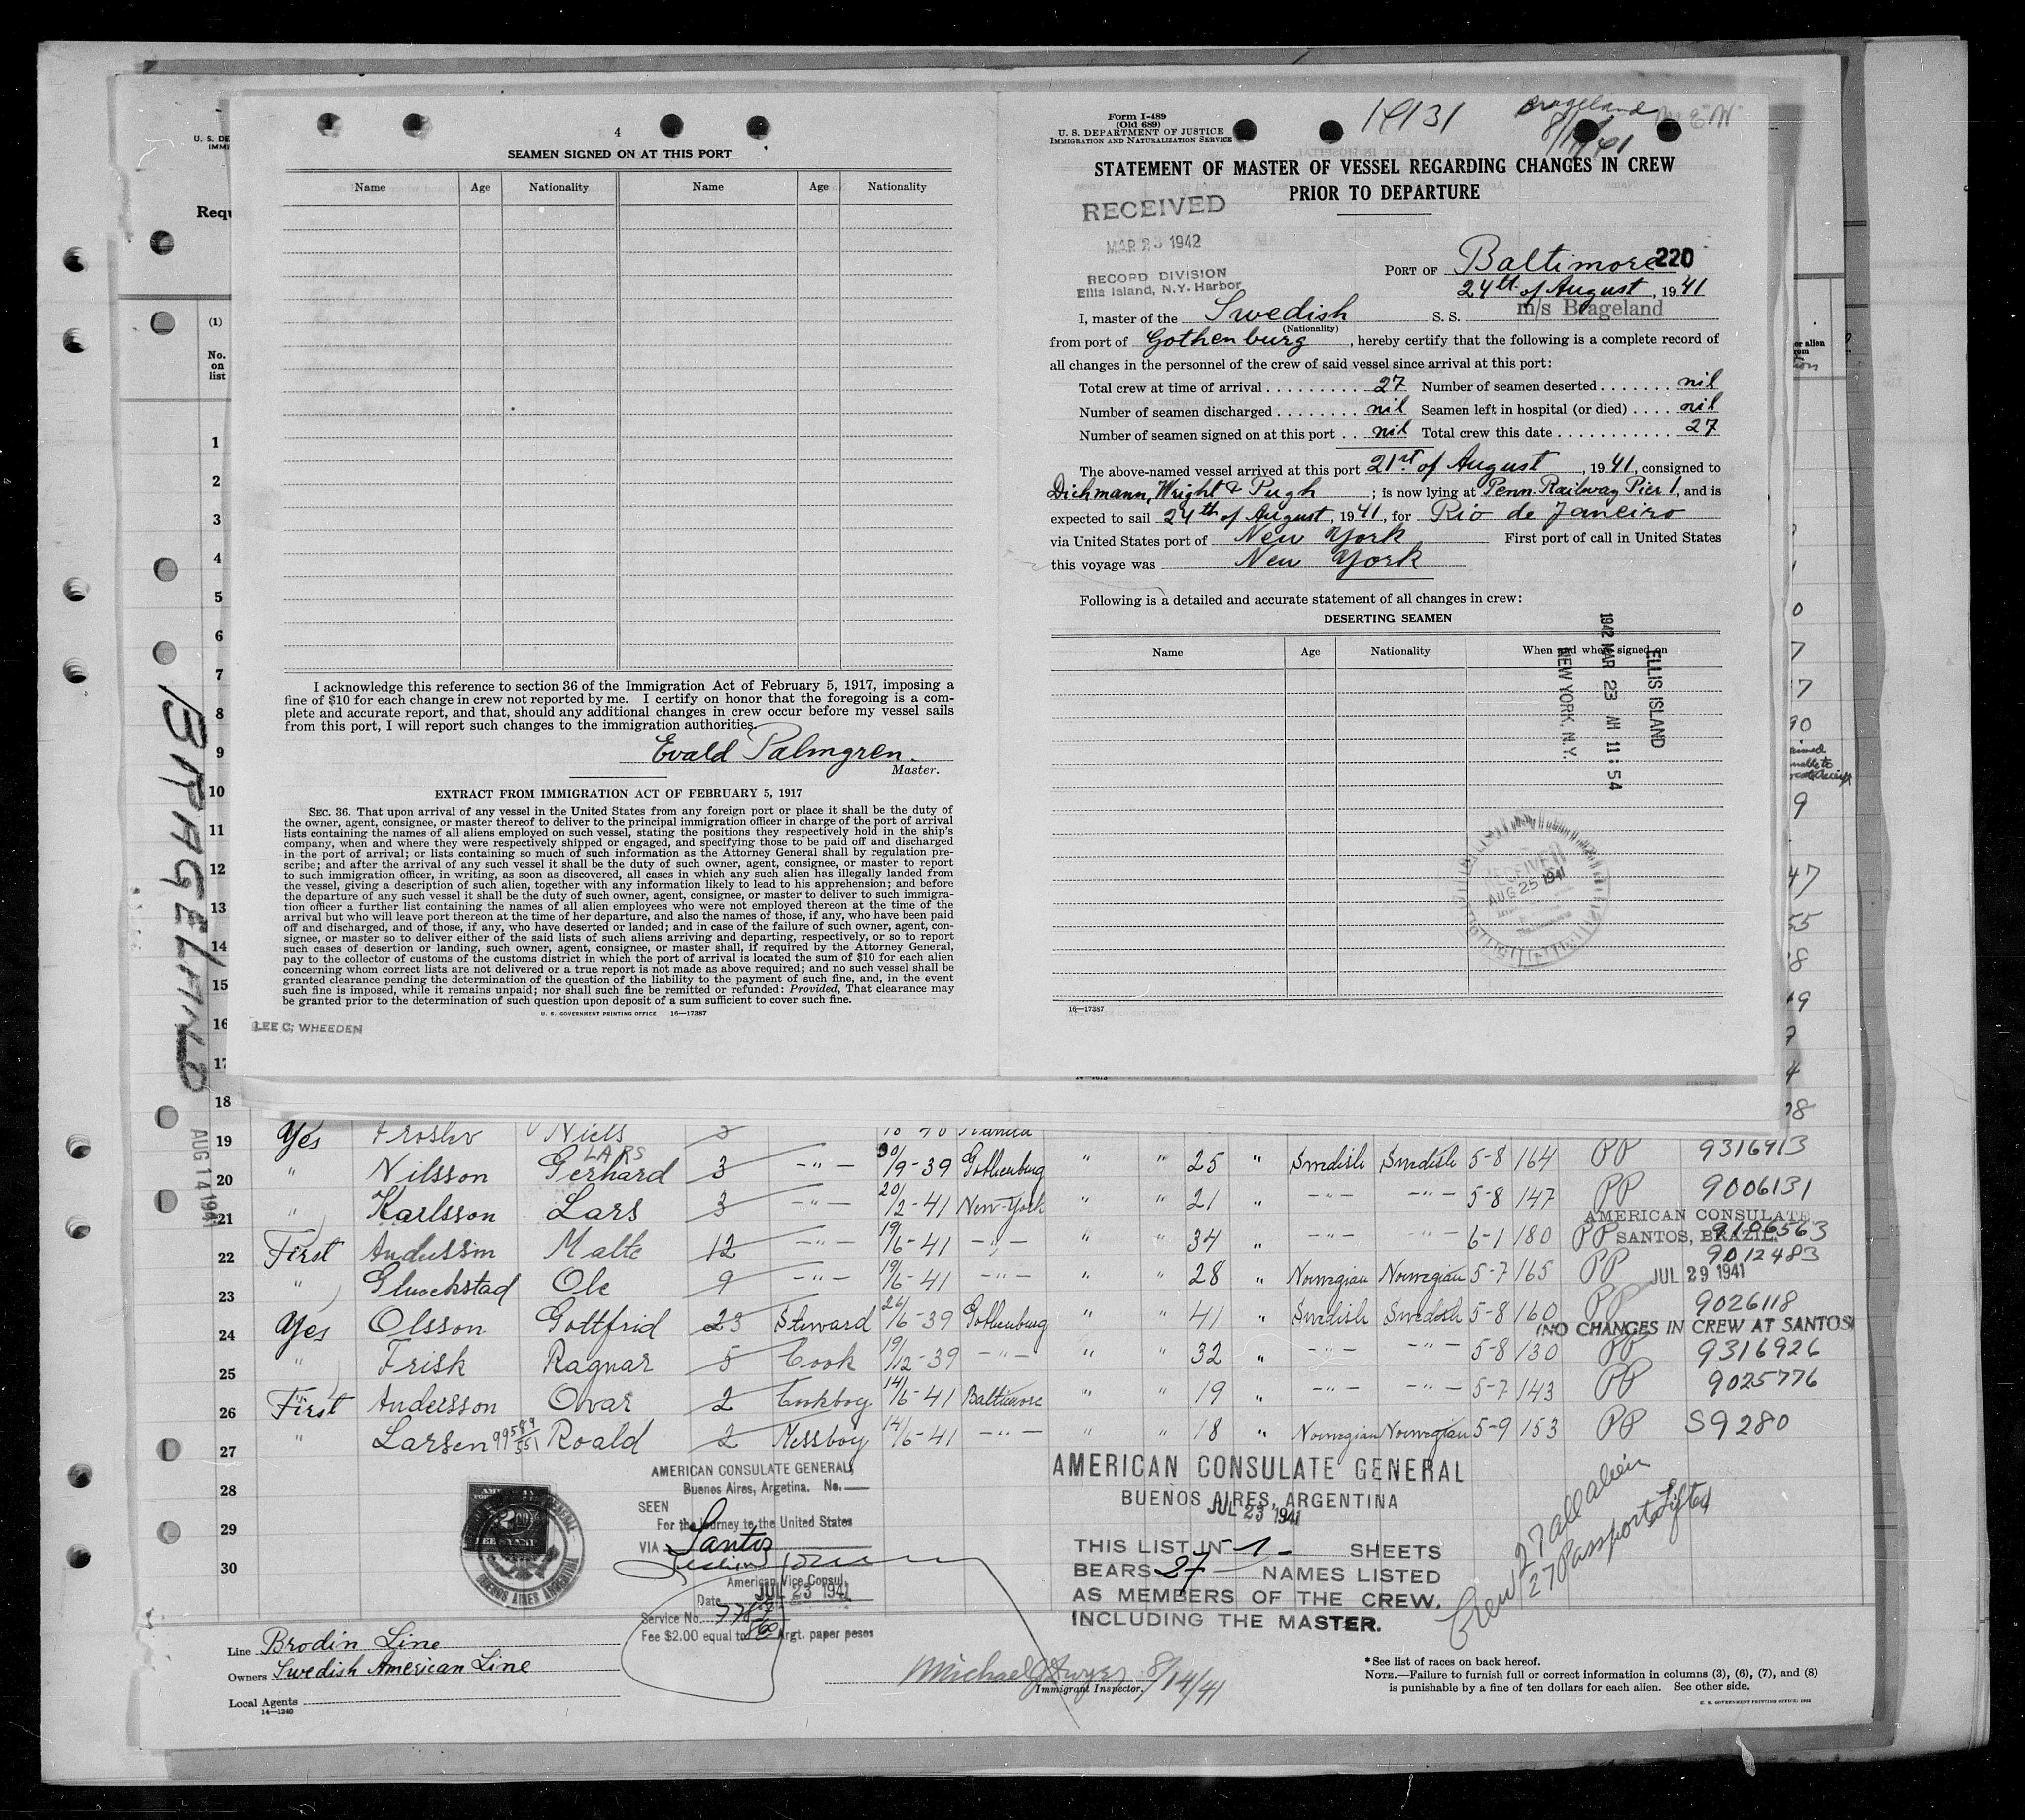 4
SEAMEN SIGNED ON AT THIS PORT
Name Age Nationality Name Age Nationality
I acknowledge this reference to section 36 of the Immigration Act of February 5, 1917, imposing a
fine of $10 for each change in crew not reported by me. I certify on honor that the foregoing is a com-
plete and accurate report, and that, should any additional changes in crew occur before my vessel sails
from this port, I will report such changes to the immigration authorities.
Evald Palmgren.
Master.
EXTRACT FROM IMMIGRATION ACT OF FEBRUARY 5, 1917
SEC. 36. That upon arrival of any vessel in the United States from any foreign port or place it shall be the duty of
the owner, agent, consignee, or master thereof to deliver to the principal immigration officer in charge of the port of arrival
lists containing the names of all aliens employed on such vessel, stating the positions they respectively hold in the ship's
company, when and where they were respectively shipped or engaged, and specifying those to be paid off and discharged
in the port of arrival; or lists containing so much of such information as the Attorney General shall by regulation pre-
scribe; and after the arrival of any such vessel it shall be the duty of such owner, agent, consignee, or master to report
to such immigration officer, in writing, as soon as discovered, all cases in which any such alien has illegally landed from
the vessel, giving a description of such alien, together with any information likely to lead to his apprehension; and before
the departure of any such vessel it shall be the duty of such owner, agent, consignee, or master to deliver to such immigra-
tion officer a further list containing the names of all alien employees who were not employed thereon at the time of the
arrival but who will leave port thereon at the time of her departure, and also the names of those, if any, who have been paid
off and discharged, and of those, if any, who have deserted or landed; and in case of the failure of such owner, agent, con-
signee, or master so to deliver either of the said lists of such aliens arriving and departing, respectively, or so to report
such cases of desertion or landing, such owner, agent, consignee, or master shall, if required by the Attorney General,
pay to the collector of customs of the customs district in which the port of arrival is located the sum of $10 for each alien
concerning whom correct lists are not delivered or a true report is not made as above required; and no such vessel shall be
granted clearance pending the determination of the question of the liability to the payment of such fine, and, in the event
such fine is imposed, while it remains unpaid; nor shall such fine be remitted or refunded: Provided, That clearance may
be granted prior to the determination of such question upon deposit of a sum sufficient to cover such fine.
U. S. GOVERNMENT PRINTING OFFICE 16—17387
LEE C. WHEEDEN
Form I-489
(Old 689)
U. S. DEPARTMENT OF JUSTICE
IMMIGRATION AND NATURALIZATION SERVICE
Brageland
STATEMENT OF MASTER OF VESSEL REGARDING CHANGES IN CREW
PRIOR TO DEPARTURE
RECEIVED
MAR 23 1942
RECORD DIVISION
Ellis Island, N.Y. Harbor
PORT OF Baltimore 220
24th of August, 1941
I, master of the Swedish S. S. m/s Brageland
(Nationality)
from port of Gothenburg, hereby certify that the following is a complete record of
all changes in the personnel of the crew of said vessel since arrival at this port:
Total crew at time of arrival 27 Number of seamen deserted nil
Number of seamen discharged nil Seamen left in hospital (or died) nil
Number of seamen signed on at this port nil Total crew this date 27
The above-named vessel arrived at this port 21st of August, 1941, consigned to
Dichmann, Wright & Pugh; is now lying at Penn. Railway Pier 1, and is
expected to sail 24th of August, 1941, for Rio de Janeiro
via United States port of New York First port of call in United States
this voyage was New York
Following is a detailed and accurate statement of all changes in crew:
DESERTING SEAMEN
Name Age Nationality When and where signed on
ELLIS ISLAND
1942 MAR 23 AM 11:54
NEW YORK, N.Y.
RECEIVED
AUG 25 1941
16—17387
(1)
No.
on
list
1
2
3
4
5
6
7
8
9
10
11
12
13
14
15
16
17
18
BRAGELAND
AUG 14 1941
19 Yes Niels 3
LARS
20 " Nilsson Gerhard 3 -"- 30/9-39 Gothenburg " " 25 " Swedish Swedish 5-8 164 PP 9316913
21 " Karlsson Lars 3 -"- 20/2-41 New-York " " 21 " -"- -"- 5-8 147 PP 9006131
AMERICAN CONSULATE
22 First Andersson Malte 12 -"- 19/6-41 -"- " " 34 " -"- -"- 6-1 180 PP 9106563
SANTOS, BRAZIL
23 " Gluckstad Ole 9 -"- 19/6-41 -"- " " 28 " Norwegian Norwegian 5-7 165 PP 9012483
JUL 29 1941
24 Yes Olsson Gottfrid 23 Steward 26/6-39 Gothenburg " " 41 " Swedish Swedish 5-8 160 PP 9026118
(NO CHANGES IN CREW AT SANTOS)
25 " Frisk Ragnar 5 Cook 19/12-39 -"- " " 32 " -"- -"- 5-8 130 PP 9316926
26 First Andersson Ovar 2 Cookboy 14/6-41 Baltimore " " 19 " -"- -"- 5-7 143 PP 9025776
27 " Larsen Roald 2 Messboy 14/6-41 -"- " " 18 " Norwegian Norwegian 5-9 153 PP S9280
28
29
30
AMERICAN CONSULATE GENERAL,
Buenos Aires, Argetina. No.
SEEN
For the journey to the United States
VIA Santos
American Vice Consul
Date JUL 23 1941
Service No.
Fee $2.00 equal to Argt. paper pesos
AMERICAN CONSULATE GENERAL
BUENOS AIRES, ARGENTINA
JUL 23 1941
THIS LIST IN -1- SHEETS
BEARS 27 NAMES LISTED
AS MEMBERS OF THE CREW,
INCLUDING THE MASTER.
Crew 27 all alien
27 Passports Lifted
Line Brodin Line
Owners Swedish American Line
Local Agents
14—1240
Michael J Dwyer 8/14/41
Immigrant Inspector.
* See list of races on back hereof.
NOTE.—Failure to furnish full or correct information in columns (3), (6), (7), and (8)
is punishable by a fine of ten dollars for each alien. See other side.